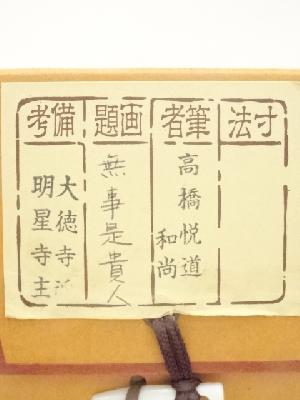 寸法
筆者
高橋悦道
和尚
画題
無事是貴人
備考
大徳寺
明星寺主